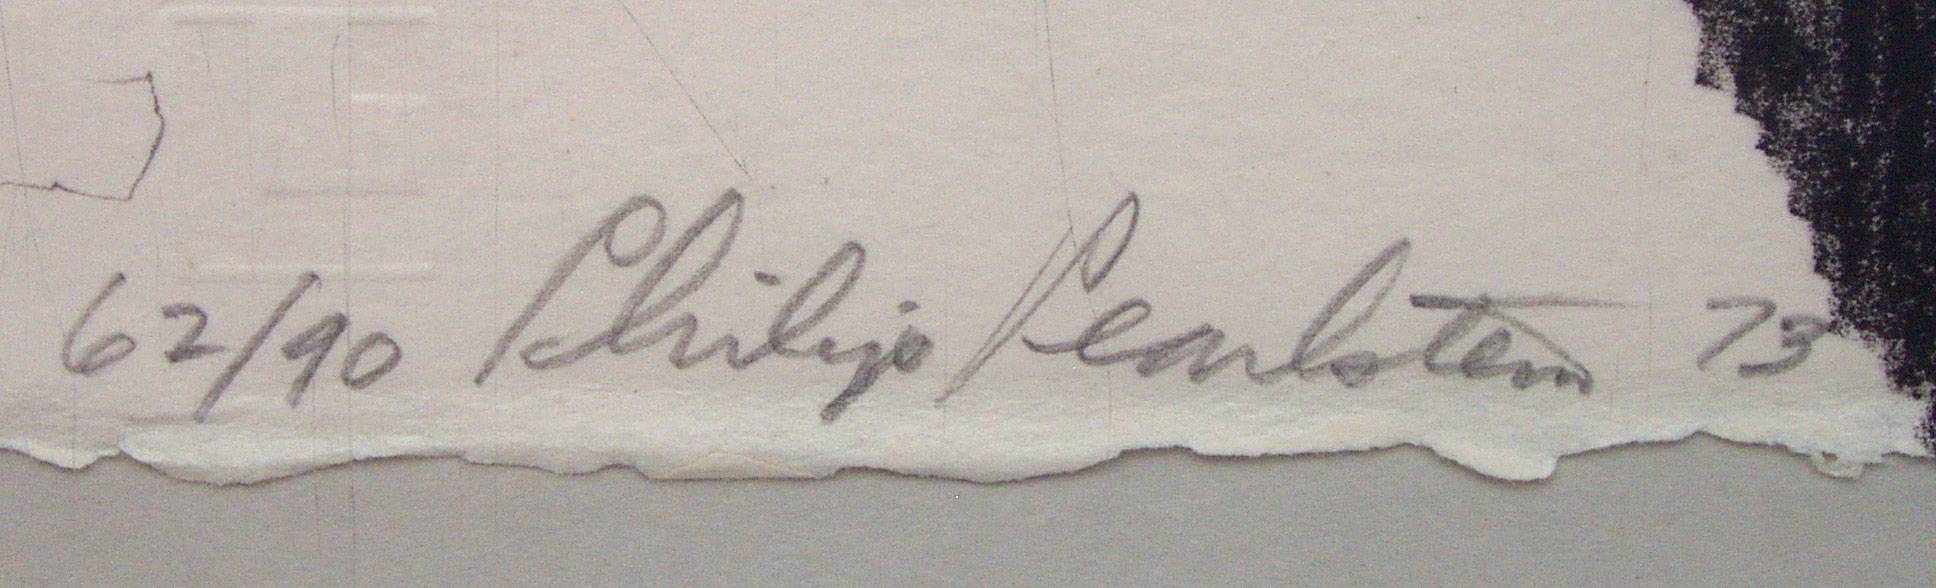 62/90 Philip Pearlstein 73